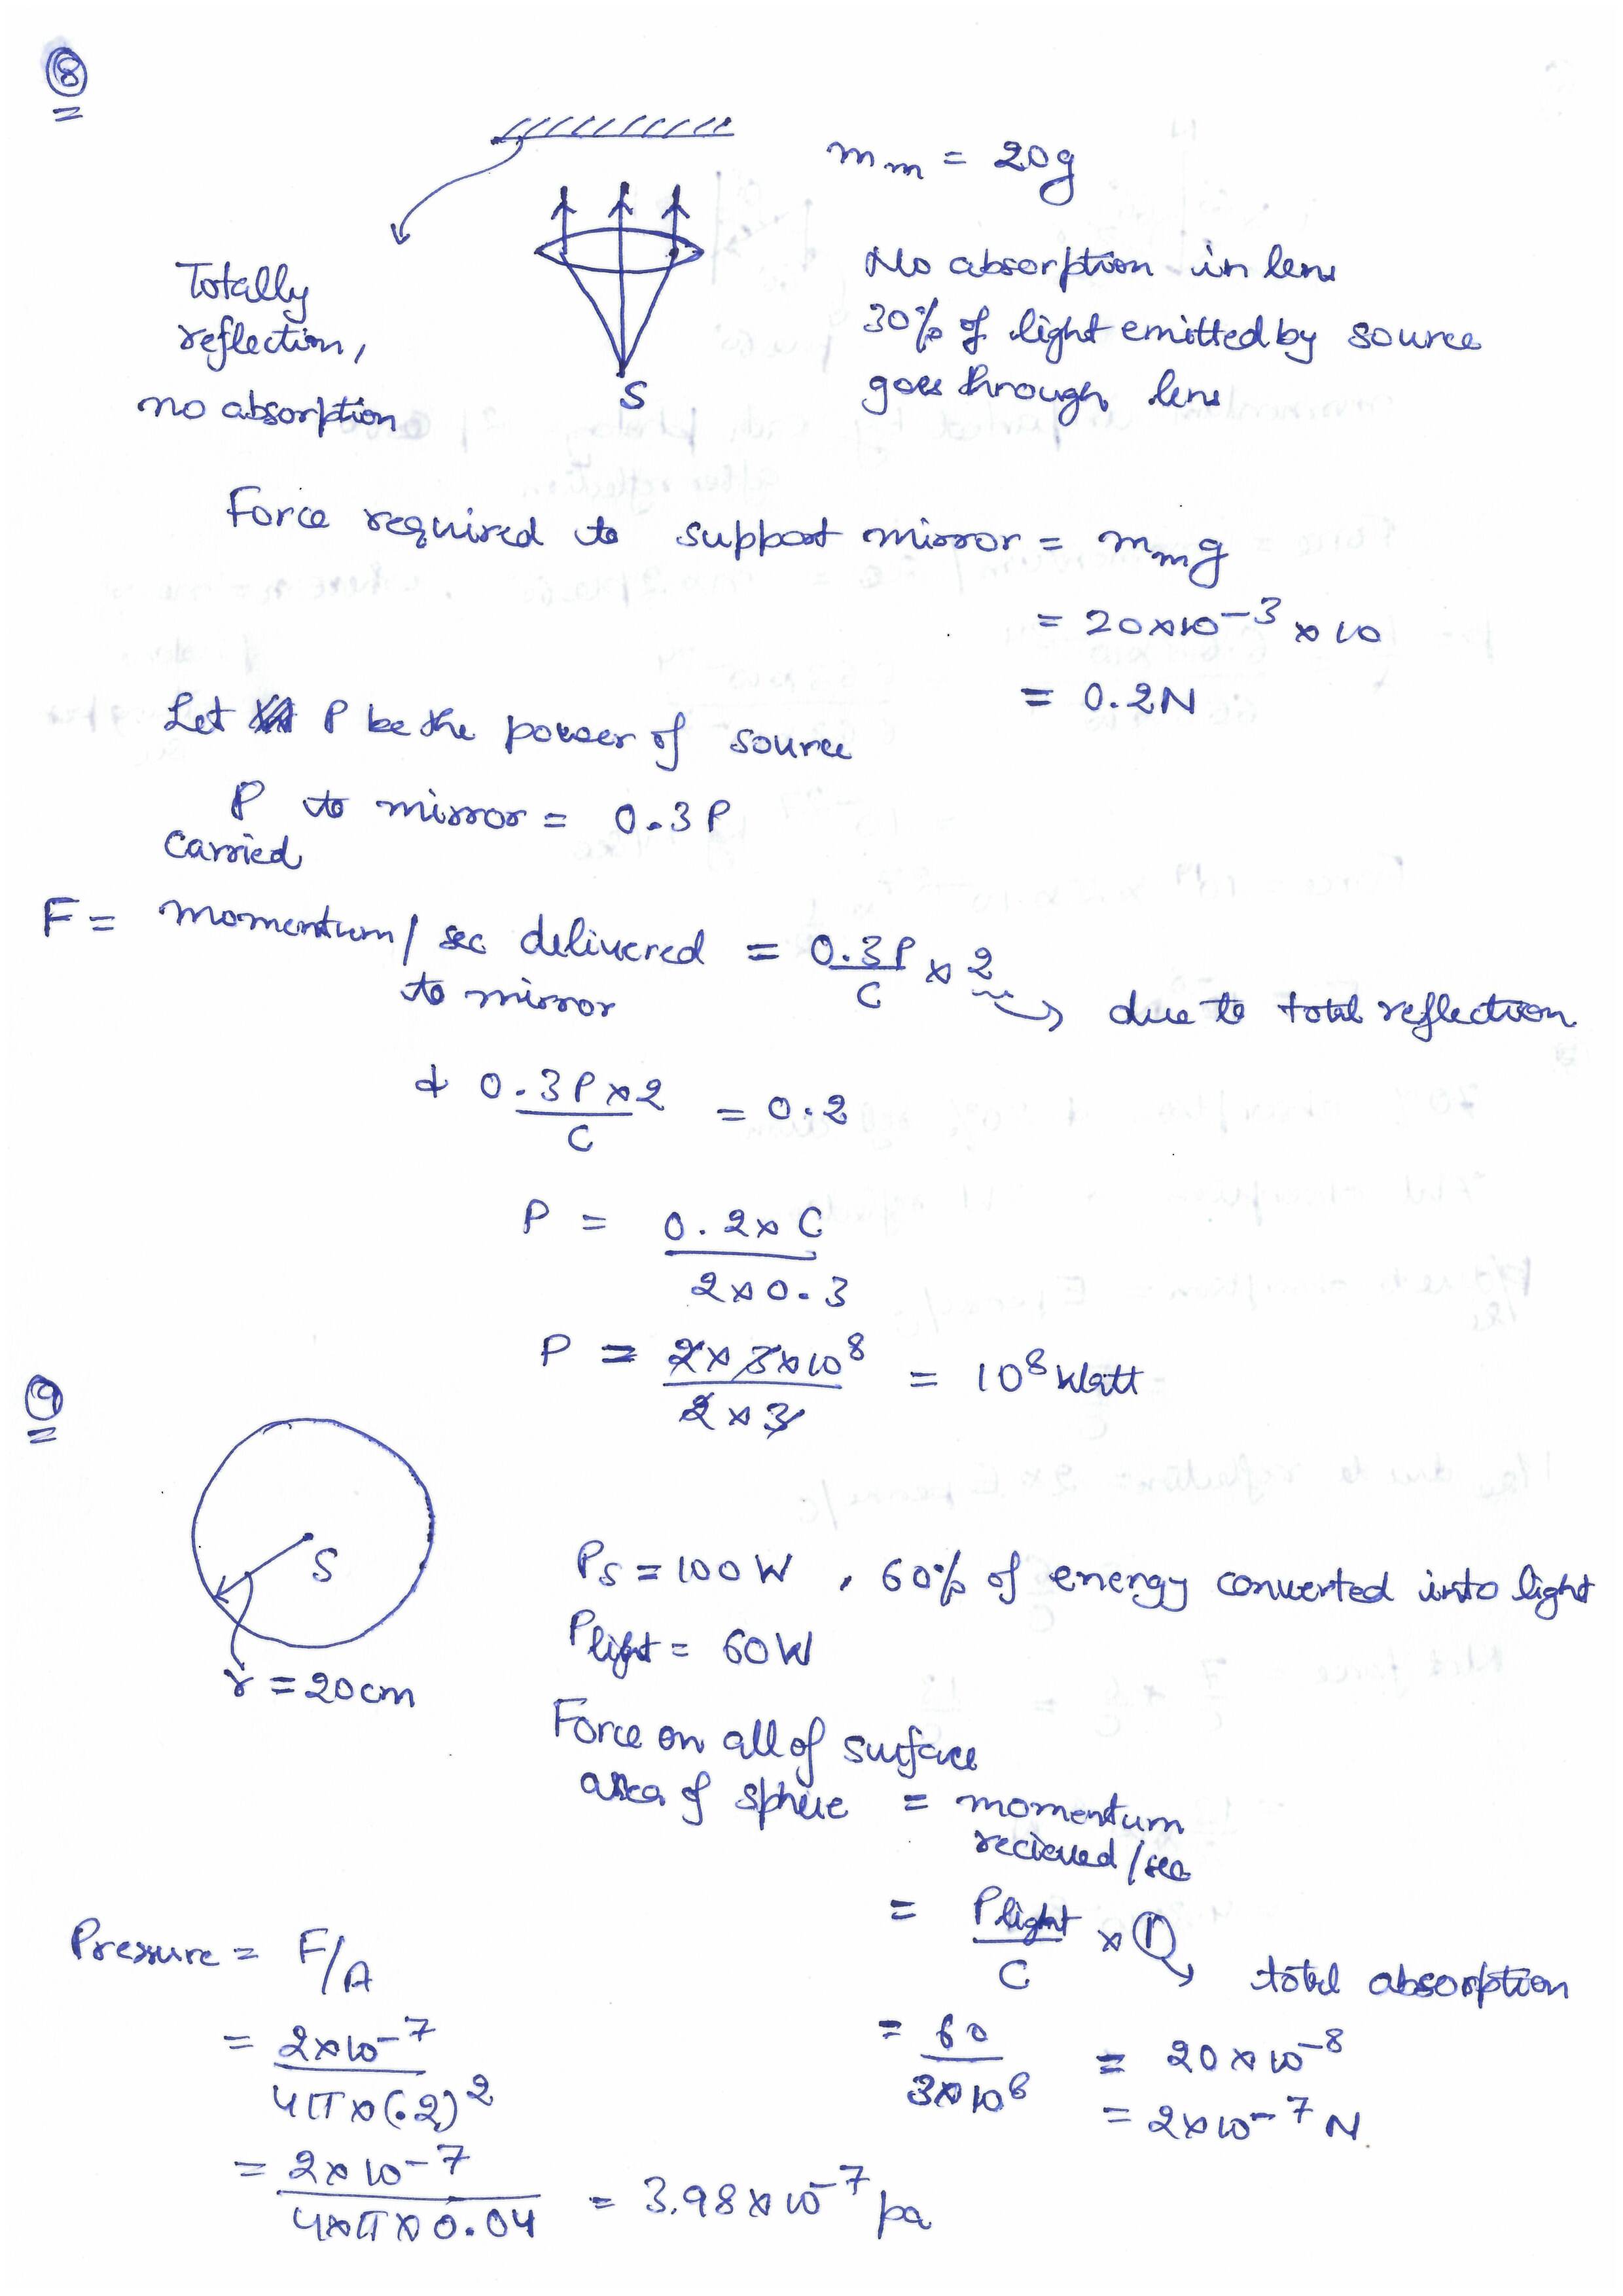 8
m_m = 20g
Totally
reflection,
no absorption
S
No absorption in lens
30% of light emitted by source
goes through lens
Force required to support mirror = m_m g
= 20×10^-3 × 10
= 0.2N
Let P be the power of source
P to mirror = 0.3P
carried
F = momentum / sec delivered = 0.3P/C × 2 → due to total reflection
to mirror
& 0.3P×2/C = 0.2
P = 0.2×C / 2×0.3
P = 2×3×10^8 / 2×3 = 10^8 Watt
9
S
r = 20cm
P_S = 100W, 60% of energy converted into light
P_light = 60W
Force on all of surface
area of sphere = momentum
recieved/sec
= P_light/C × 1 → total absorption
= 60/3×10^8 = 20×10^-8
= 2×10^-7 N.
Pressure = F/A
= 2×10^-7 / 4π×(.2)^2
= 2×10^-7 / 4×π×0.04 = 3.98×10^-7 pa